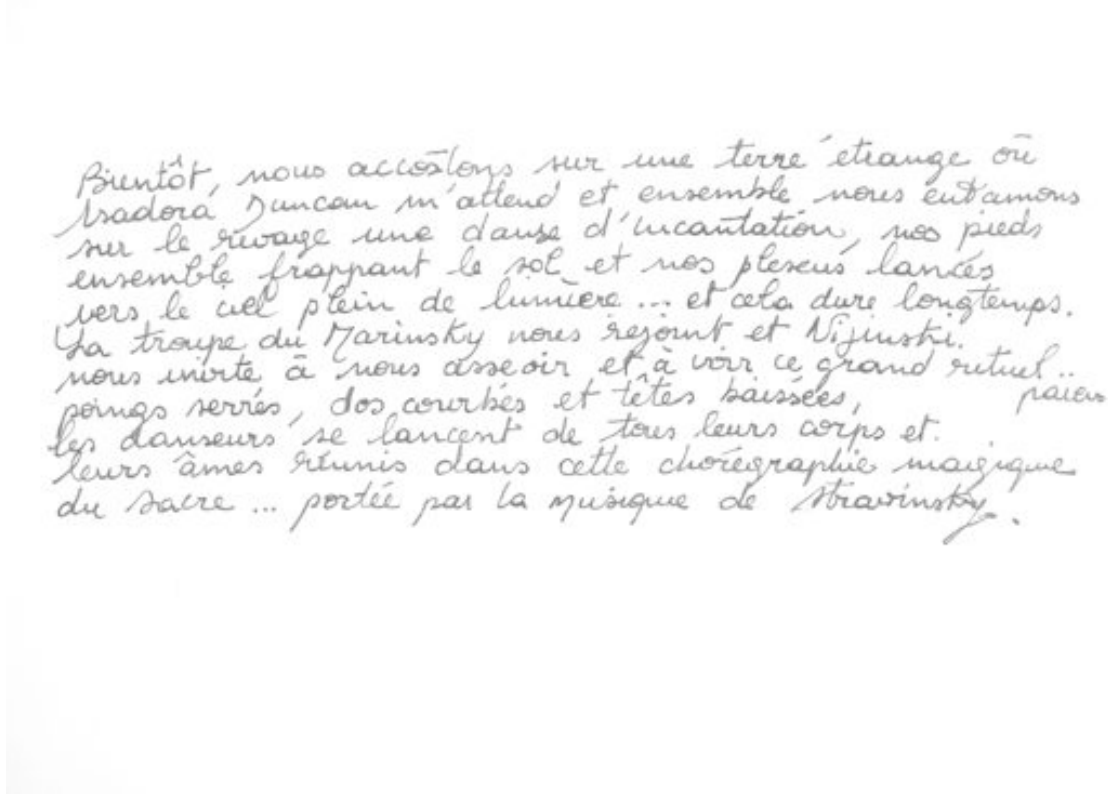 Bientôt, nous accostons sur une terre étrange où
Isadora Duncan m'attend et ensemble nous entamons
sur le rivage une danse d'incantation, nos pieds
ensemble frappant le sol et nos plexus lancés
vers le ciel plein de lumière... et cela dure longtemps.
La troupe du Marinsky nous rejoint et Nijinski.
nous invite à nous asseoir et à voir ce grand rituel..
païen
poings serrés, dos courbés et têtes baissées,
les danseurs se lancent de tous leurs corps et.
leurs âmes réunis dans cette chorégraphie magique
du sacre... portée par la musique de Stravinsky.